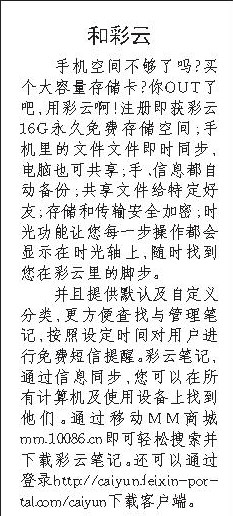 和彩云
手机空间不够了吗?买
个大容量存储卡?你OUT了
吧,用彩云啊!注册即获彩云
16G永久免费存储空间;手
机里的文件文件即时同步,
电脑也可共享;手、信息都自
动备份;共享文件给特定好
友;存储和传输安全加密;时
光功能让您每一步操作都会
显示在时光轴上,随时找到
您在彩云里的脚步。
并且提供默认及自定义
分类,更方便查找与管理笔
记,按照设定时间对用户进
行免费短信提醒。彩云笔记,
通过信息同步,您可以在所
有计算机及使用设备上找到
他们。通过移动MM商城
mm.10086.cn即可轻松搜索并
下载彩云笔记。还可以通过
登录http://caiyun.feixin-por-
tal.com/caiyun下载客户端。